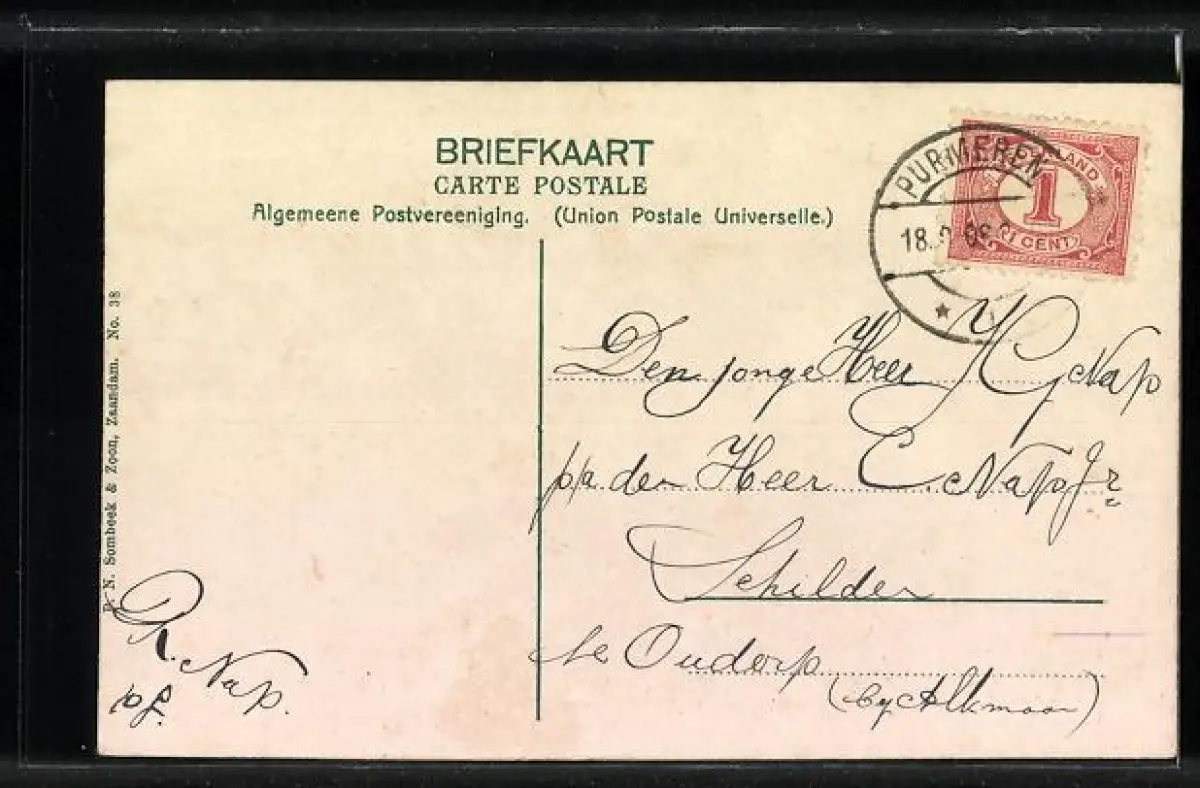 BRIEFKAART
CARTE POSTALE
Algemeene Postvereeniging. (Union Postale Universelle.)
PURMEREN
LAND
1
(1 CENT)
18.
Den jonge Heer Nap
p/a den Heer C. Nap Jr
Schilder
te Oudorp
(by Alkmaar)
N. Sombeek & Zoon, Zaandam. No. 38
Nap.